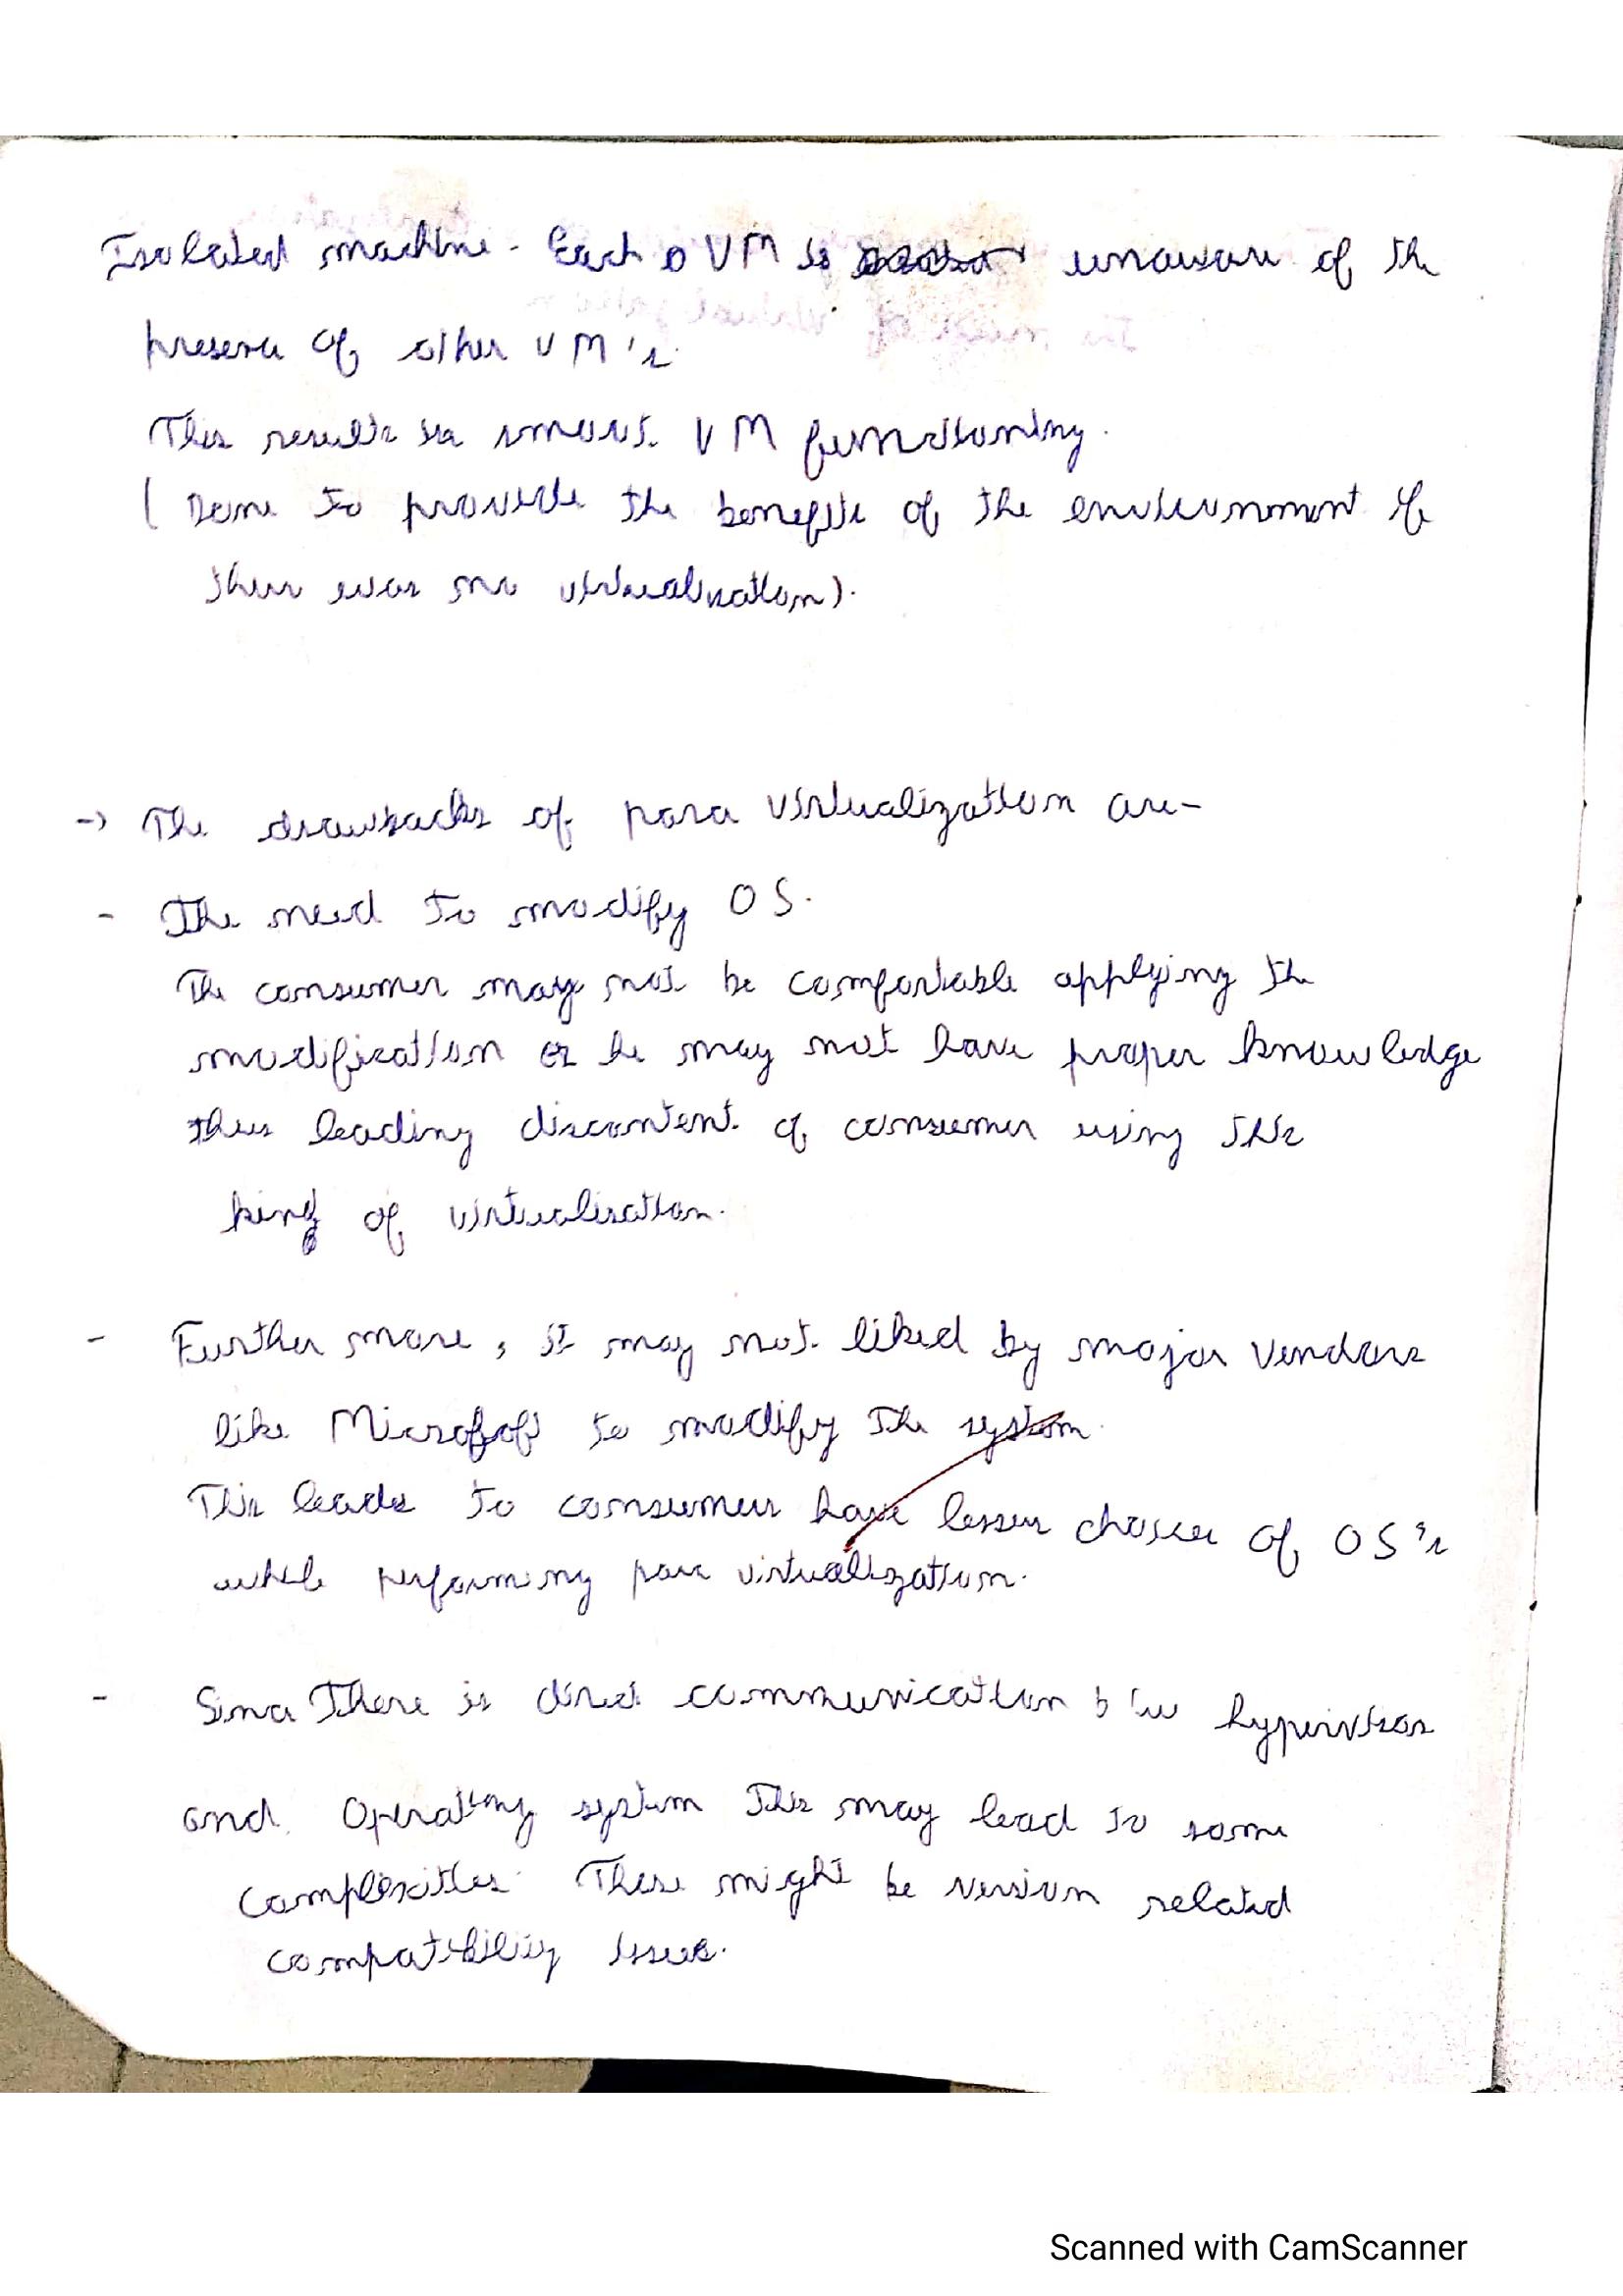 Isolated machine - Each VM is unaware of the
presence of other VM's.
This results in smoot. VM functioning.
( Done to provide the benefits of the environment if
there was no virtualisation).
-> The drawbacks of para virtualization are-
- The need to modify OS.
The consumer may not be comfortable applying the
modification or he may not have proper knowledge
thus leading discontent of consumer using this
kind of virtualisation.
- Further more, it may not liked by major vendors
like Microsoft to modify the system.
This leads to consumers have lesser choices of OS's
while performing para virtualization.
- Since there is direct communication b/w hypervisor
and Operating system this may lead to some
complexities. These might be version related
compatibility issues.
Scanned with CamScanner